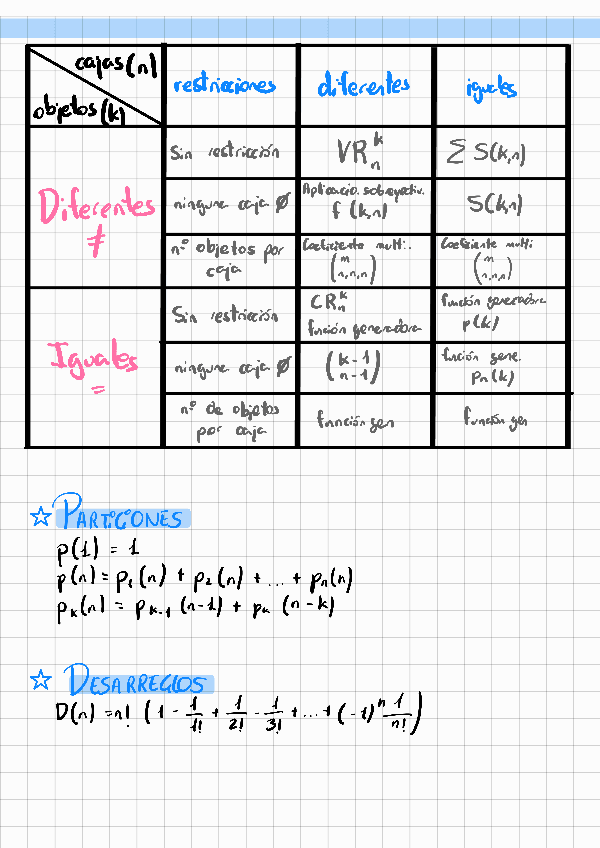 cajas(n)
objetos(k)
restricciones
diferentes
iguales
Diferentes
≠
Sin restricción
VRₙᵏ
∑ S(k,n)
ninguna caja Ø
Aplicacio. sobreyectiv.
f (k,n)
S(k,n)
nº objetos por
caja
Coeficiente multi:.
(m
n,n,n)
Coeficiente multi:
(m
n,n,n)
Iguales
=
Sin restricción
CRₙᵏ
función generadora
función generadora
p(k)
ninguna caja Ø
(k-1
n-1)
función gene.
pₙ(k)
nº de objetos
por caja
función gen
función gen
☆ PARTICIONES
p(1) = 1
p(n) = p₁(n) + p₂(n) + ... + pₙ(n)
pₖ(n) = pₖ₋₁ (n-1) + pₖ (n-k)
☆ DESARREGLOS
D(n) = n! (1 - 1/1! + 1/2! - 1/3! + ... + (-1)ⁿ 1/n!)